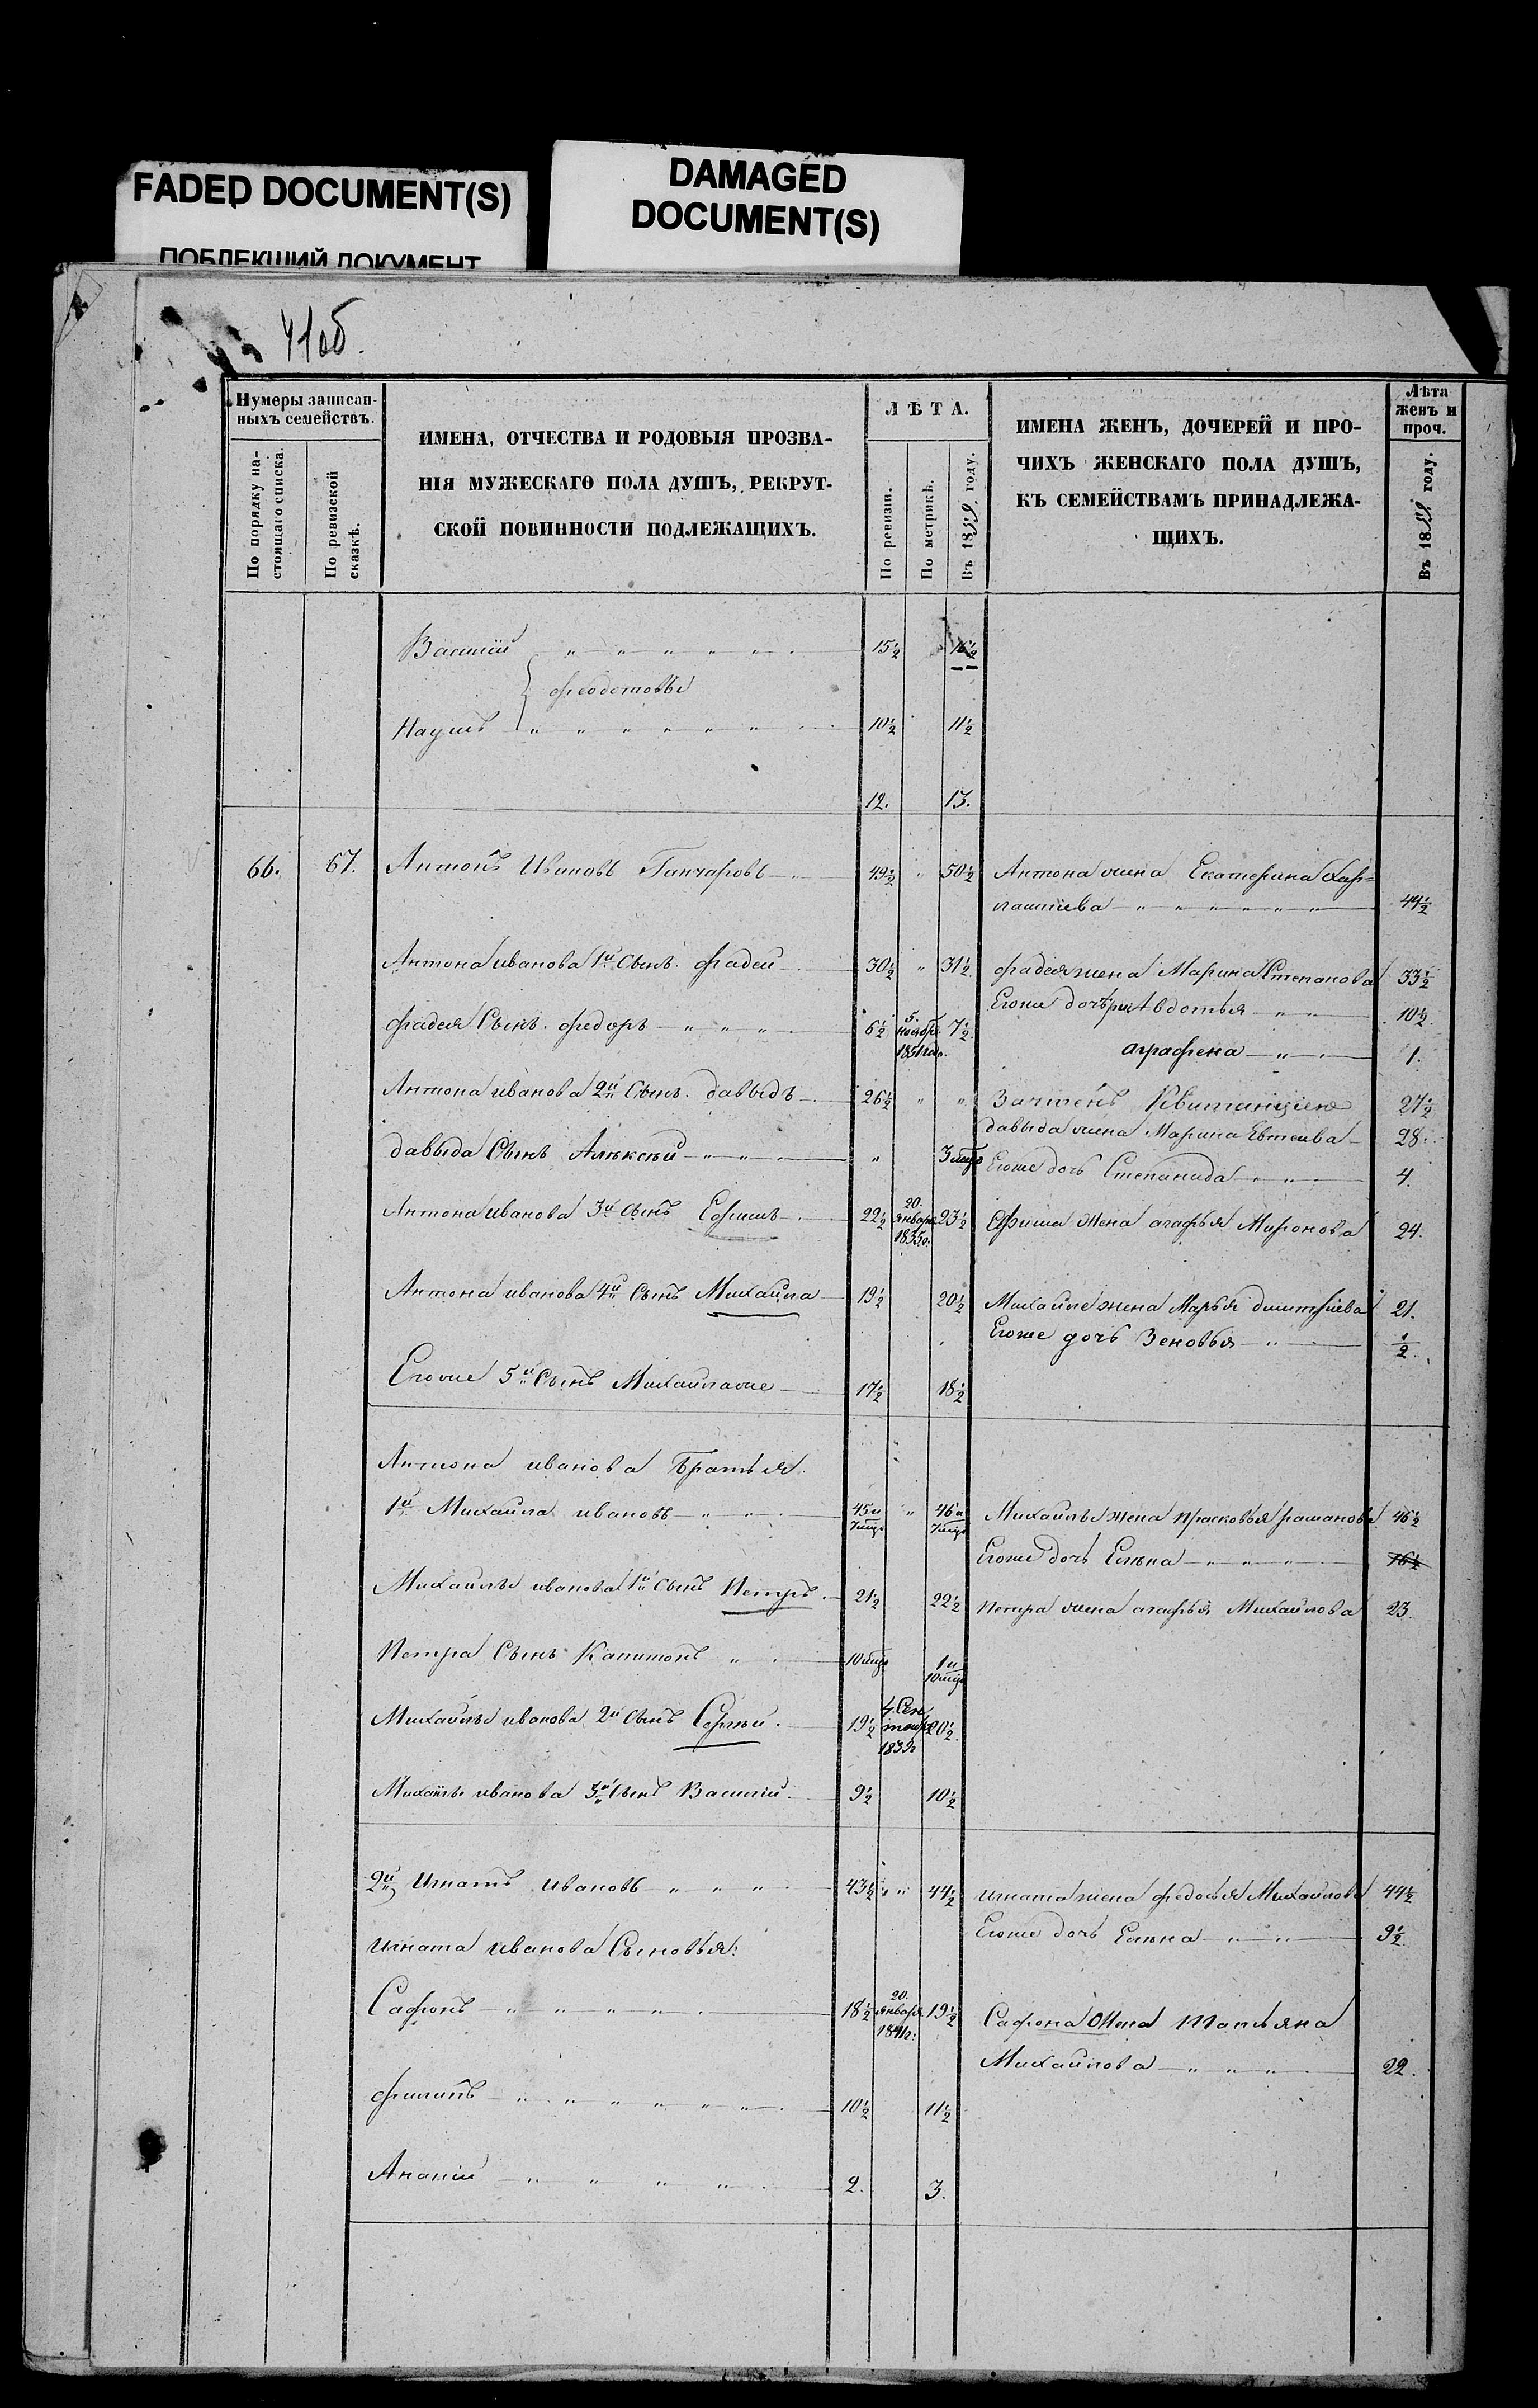 FADED DOCUMENT(S)
ПОБЛЕКШИЙ ДОКУМЕНТ
DAMAGED
DOCUMENT(S)
41об.
Нумеры записан-
ныхъ семействъ.
По порядку на-
стоящаго списка.
По ревизской
сказкѣ.
ИМЕНА, ОТЧЕСТВА И РОДОВЫЯ ПРОЗВА-
НІЯ МУЖЕСКАГО ПОЛА ДУШЪ, РЕКРУТ-
СКОЙ ПОВИННОСТИ ПОДЛЕЖАЩИХЪ.
ЛѢТА.
По ревизіи.
По метрикѣ.
Въ 1859 году.
ИМЕНА ЖЕНЪ, ДОЧЕРЕЙ И ПРО-
ЧИХЪ ЖЕНСКАГО ПОЛА ДУШЪ,
КЪ СЕМЕЙСТВАМЪ ПРИНАДЛЕЖА-
ЩИХЪ.
Лѣта
женъ и
проч.
Въ 1859 году.
Василій " " " " " 15½ 16½
Феодотовы
Наумъ " " " " " " 10½ 11½
12. 13.
66. 67. Антонъ Ивановъ Ганчаровъ 49½ " 50½ Антона жена Екатерина Хар=
лампіева " " " " " 44½
Антона иванова 1й Сынъ Фадей 30½ " 31½ Фадея жена Марина Степанова 33½
Егоже дочери Авдотья " " 10½
Фадея Сынъ Федоръ " " " 6½ 5. ноябр. 1851 года. 7½
аграфена " 1.
Антона иванова 2й Сынъ давыдъ 26½ " " Зачтенъ Квитанціею 27½
давыда жена Марина Евтеева 28.
давыда Сынъ Алексѣй " " " 3 мѣця Егоже дочь Степанида " " 4.
Антона иванова 3й Сынъ Ефимъ 22½ 20. Января 1835г. 23½ Ефима Жена агафья Миронова 24.
Антона иванова 4й Сынъ Михайла 19½ 20½ Михайлы жена Марья дмитріева 21.
Егоже дочь Зеновья " ½.
Егоже 5й Сынъ Михайлаже 17½ 18½
Антона иванова Братья
1й Михайла ивановъ " " 45 и 7 мѣця " 46 и 7 мѣця Михайлы жена Прасковья 46½
Егоже дочь Елена " " " 16½
Михайлы иванова 1й Сынъ Петръ. 21½ 22½ Петра жена агафья Михайлова 23.
Петра Сынъ Капитонъ " 10 мѣця 1 и 10 мѣця
Михайлы иванова 2й Сынъ Сергѣй. 19½ 4 Сен тября 1839г 20½.
Михайлы иванова 3й Сынъ Василій 9½ 10½
2й Игнатъ Ивановъ " " " 43½ " " 44½ игната жена федосья Михайлова 44½
Егоже дочь Елена " " 9½
Игната иванова Сыновья:
Сафонъ " " " " 18½ 20. Января 1841г. 19½ Сафона Жена Татьяна
Михайлова " " " 22.
Филипъ " " " " " " 10½ 11½
Ананій " " " " 2. 3.